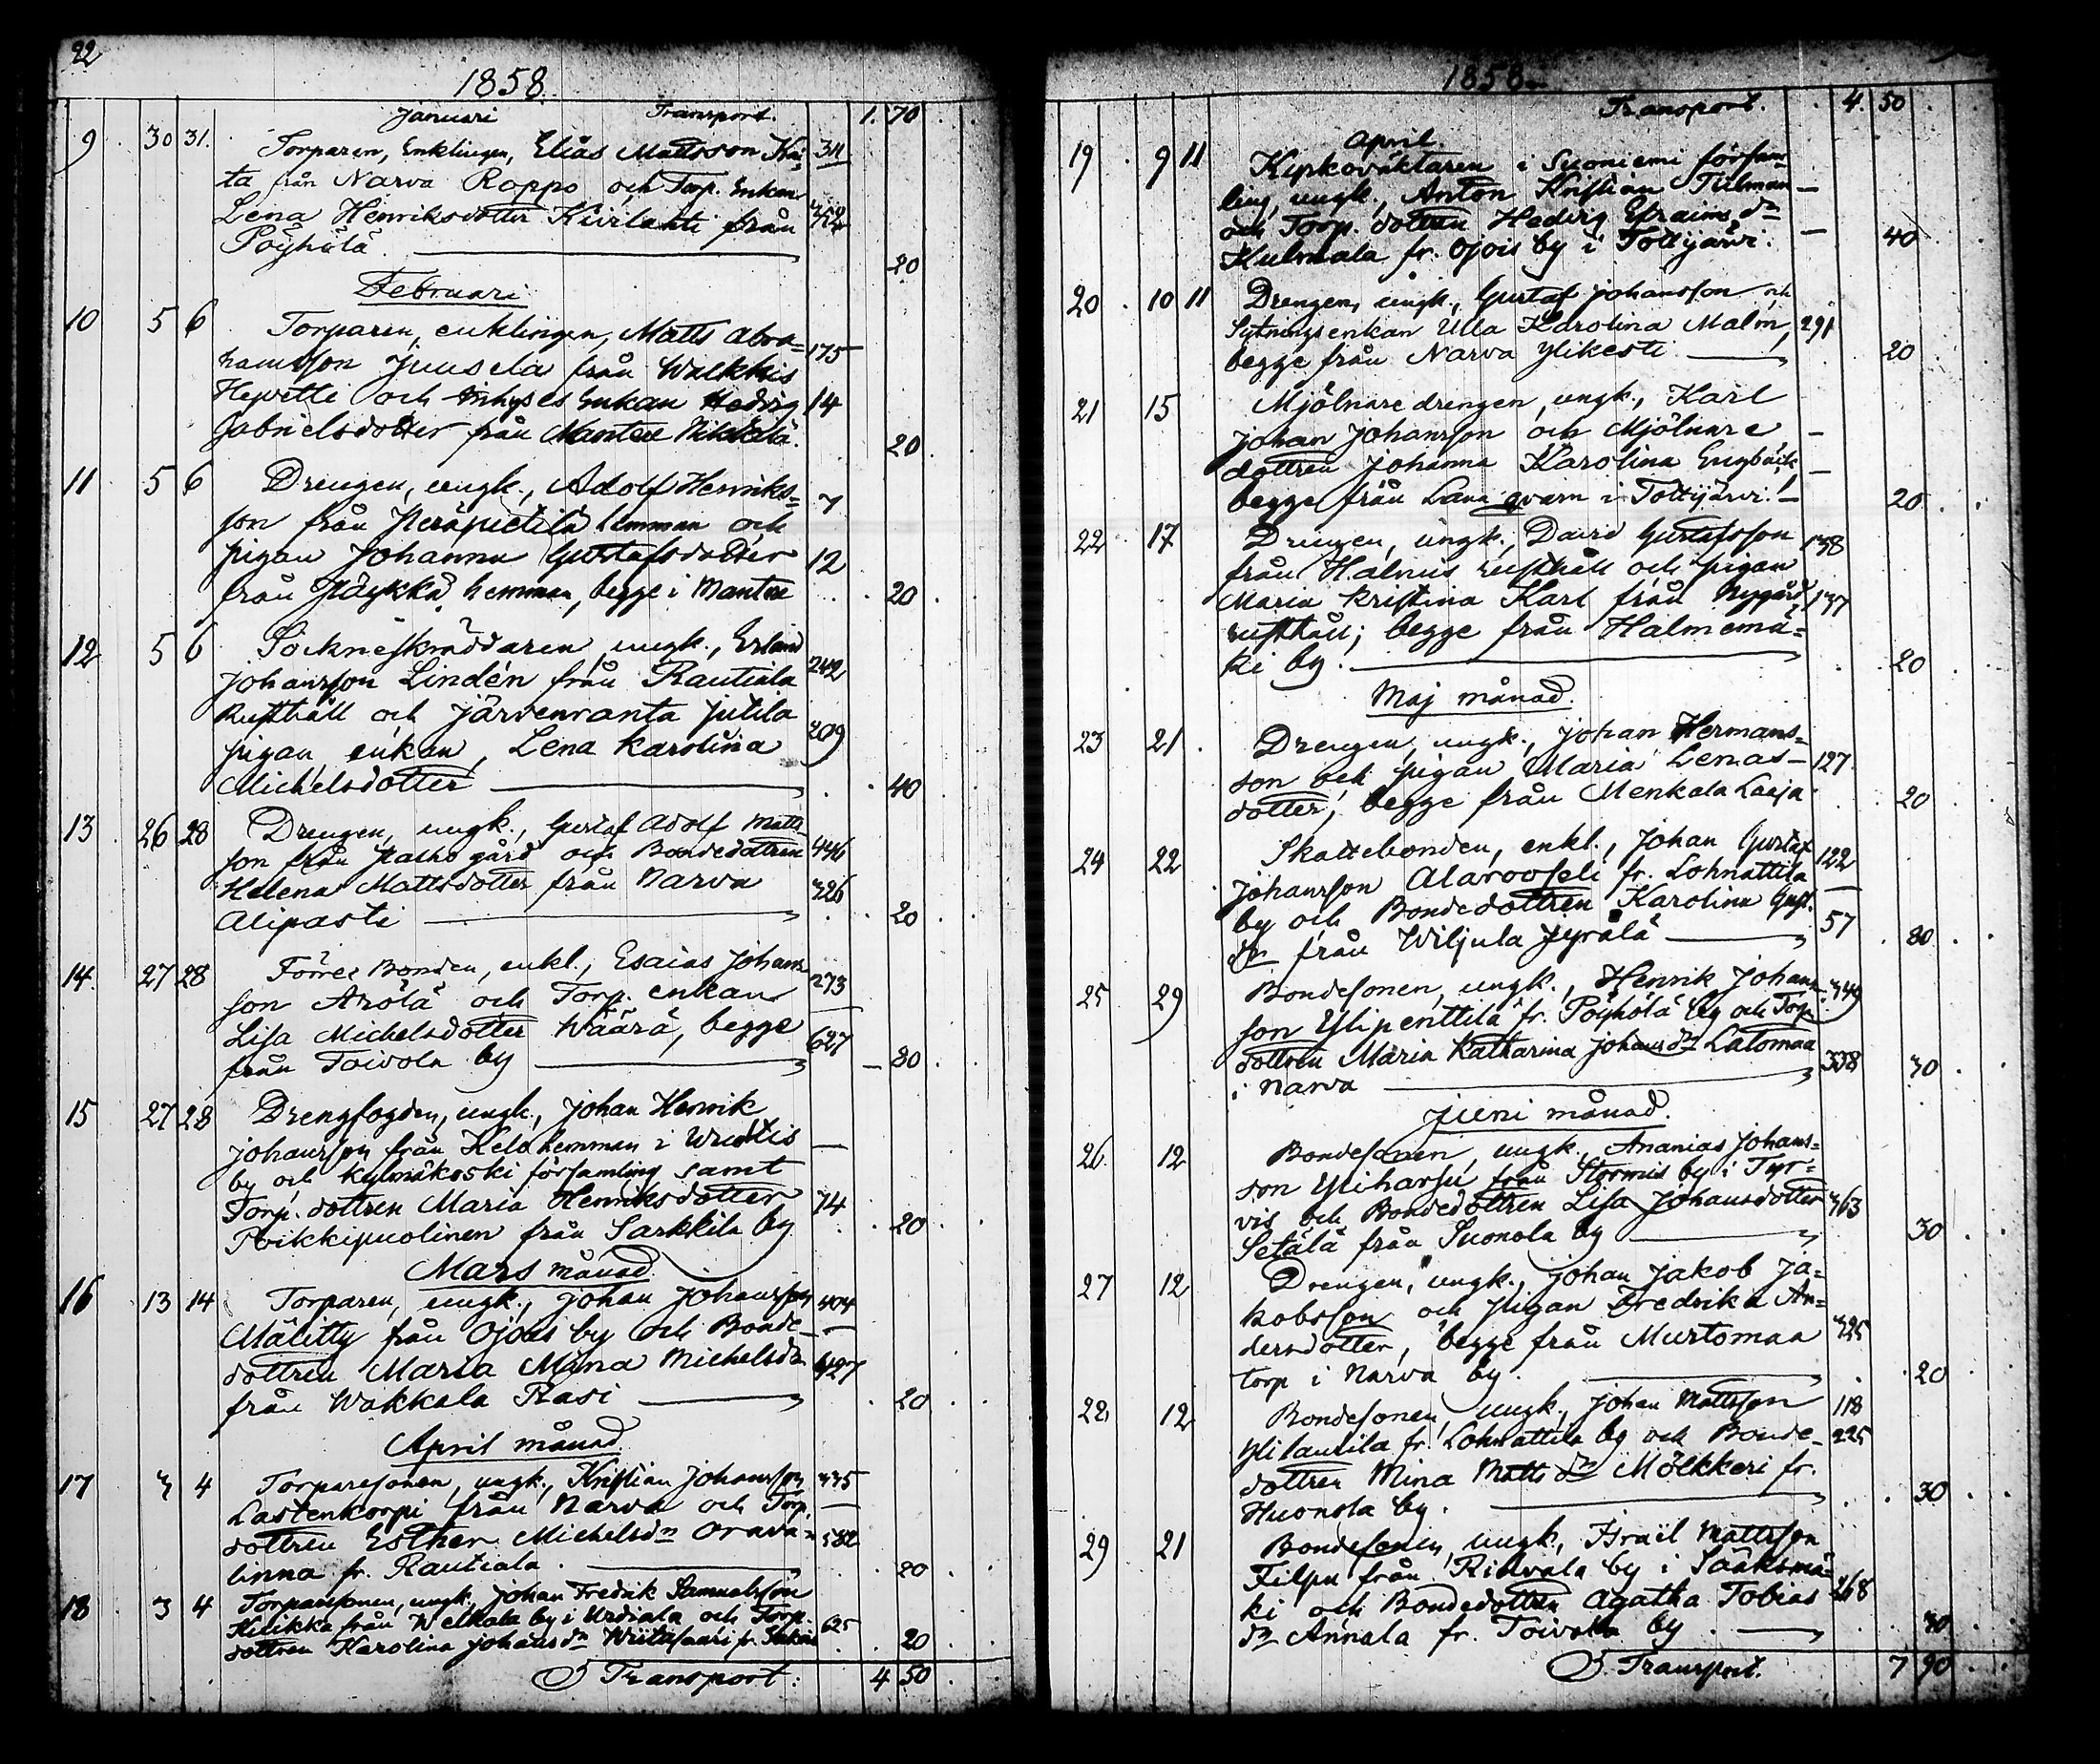 22
1858.
Januari Transport. 1. 70
9 30 31. Torparen, Enklingen, Elias Mattsson 311
ta från Narva Roppo och Torp. Enkan
Lena Henriksdotter Kivilahti från 352
Pöyhölä 20
Februari
10 5 6 Torparen, enklingen, Matts Abra= 175
hamsson Juusela från Walkkis
Heikkilä och Inhyses Enkan Hedvig 14
Gabrielsdotter från Mantere 20
11 5 6 Drengen, ungk., Adolf Henriks= 7
son från hemman och
pigan Johanna Gustafsdotter 12
från hemman, begge i Mantere 20
12 5 6 Sockneskräddaren, ungk., Erland 242
Johansson Lindén från Rautiala
Rusthåll och Järvenranta Jutila 309
pigan, enkan, Lena Karolina
Michelsdotter 40
13 26 28 Drengen, ungk., Gustaf Adolf Matts
son från gård och Bondedottren 446
Helena Mattsdotter från Narva 326
Alipasti 20
14. 27 28 Förre Bonden, enkl., Esaias Johans 273
son Arölä och Torp. enkan
Lisa Michelsdotter Wäärä, begge 627
från Toivola by 80
15 27 28 Drengfogden, ungk., Johan Henrik
Johansson från Kelo hemman i —
by och Kylmäkoski församling samt
Torp. dottren Maria Henriksdotter 74
Poikkipuolinen från Sarkkila by 20
Mars månad
16 13 14 Torparen, ungk., Johan Johansson 404
Mälitty från Ojois by och Bonde —
dottren Maria Mina Michelsdr 427
från Wakkala Rasi 20
April månad
17 3 4 Torparesonen, ungk., Kristian Johansson 335
Lastenkorpi från Narva och Torp. —
dottren Esther Michelsdr Orava= 582
linna fr. Rautiala 20
18 3 4 Torparesonen, ungk., Johan Fredrik Samuelsson
Kiikka från by i Urdiala och Torp. 625
dottren Karolina Johansdr Wiitasaari fr. 20
Transport: 4 50
1858
Transport. 4. 50
April
19 9 11 Kyrkoväktaren i Suoniemi försam=
ling, ungk., Anton Kristian Tulman —
och Torp. dottren Hedvig Efraims dr —
Kulmala fr. Ojois by i Tottijärvi. 40
20 10 11 Drengen, ungk., Gustaf Johansson och
Sytningsenkan Ulla Karolina Malm, 291
begge från Narva Ylikesti 20
21 15 Mjölnaredrengen, ungk., Karl
Johan Johansson och Mjölnare —
dottren Johanna Karolina Engbäck —
begge från Lana qvarn i Tottijärvi. 20
22 17 Drengen, ungk., David Gustafsson 138
från Halmis rusthåll och pigan
Maria Kristina Karl från Nygård 137
rusthåll; begge från Halmemä=
ki by. 20
Maj månad.
23 21 Drengen, ungk., Johan Hermans=
son och pigan Maria Lenas— 127
dotter, begge från Menkala Laija 20
24 22 Skattebonden, enkl., Johan Gustaf 122
Johansson Alarooseli fr. Lohnattila —
by och Bondedottren Karolina Gust. 57
dr från Wiljula Jyrälä 80
25 29 Bondesonen, ungk., Henrik Johans= 349
son Ylipenttilä fr. Pöyhölä by och Torp
dottren Maria Katharina Johans dr Latomaa 338
i Narva 30
Juni månad.
26. 12 Bondesonen, ungk., Ananias Johans=
son Yliharsu från Stormis by i Tyr=
vis och Bondedottren Lisa Johansdotter 363
Setälä från Suonola by 30
27 12 Drengen, ungk., Johan Jakob Ja=
kobsson och Pigan Fredrika An=
dersdotter, begge från Murtomaa 325
torp i Narva by. 20
28 12 Bondesonen, ungk., Johan Mattsson 118
Ylilautila fr. Lohnattila by och Bonde— 225
dottren Mina Matts dr Mölkkeri fr.
Huonola by. 30
29 21 Bondesonen, ungk., Israil Mattsson
Filpu från Ridvala by i Sääksmä=
ki och Bondedottren Agatha Tobias 268
dr Annala fr. Toivola by 30
Transport. 7 90